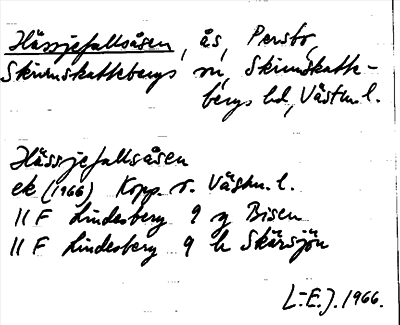 Hässjefallsåsen, ås, Persbo,
Skinnskattebergs sn, Skinnskatte-
bergs hd, Västm. l.
Hässjefallsåsen
ek (1966) Kopp. o. Västm. l.
11 F Lindesberg 9 g Bisen
11 F Lindesberg 9 h Skärsjön
L-E. J. 1966.